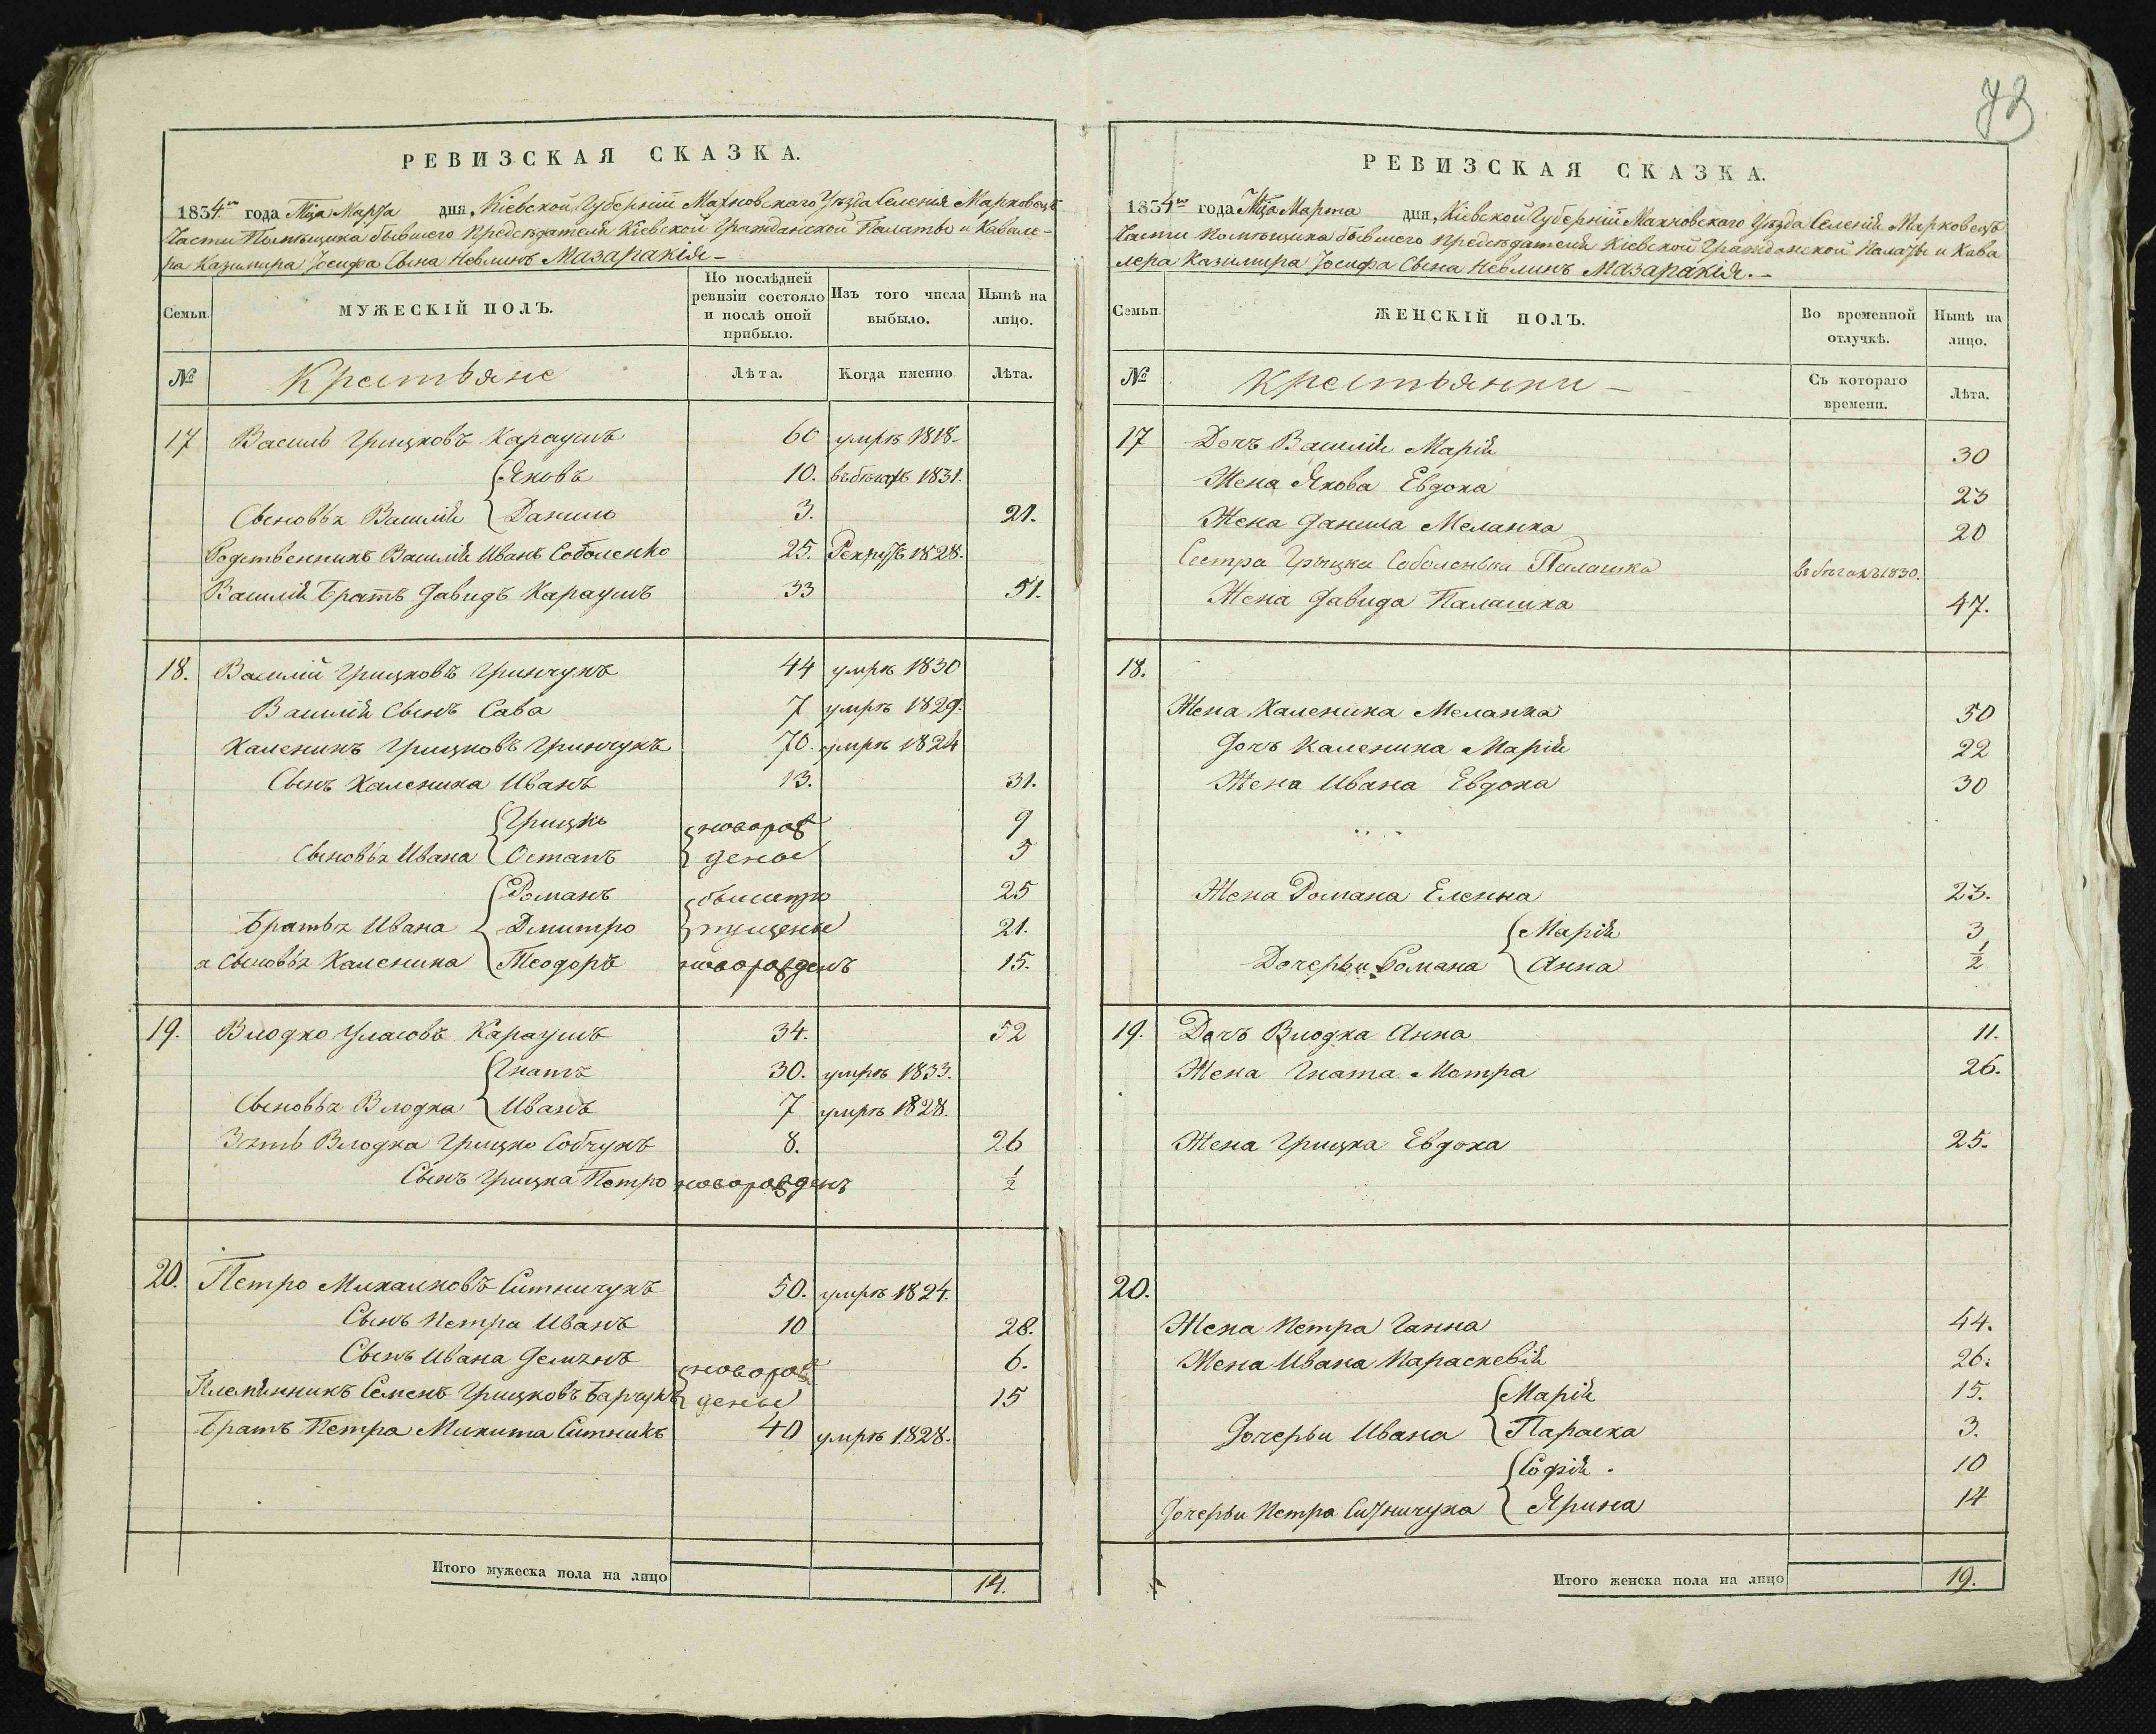 73
РЕВИЗСКАЯ СКАЗКА.
1834го года Мца Марта дня, Кіевской Губерніи Махновскаго Уѣзда Селенія Марковецъ
Части Помѣщика бывшего Предсѣдателя Кіевской Гражданской Палаты и Кавале-
ра Казимира Іосифа Сына Невлинъ Мазаракія -
Семьи.
МУЖЕСКІЙ ПОЛЪ.
По послѣдней ревизіи состояло и послѣ оной прибыло.
Изъ того числа выбыло.
Нынѣ на лицо.
№
Крестьяне
Лѣта.
Когда именно
Лѣта.
17 Василь Грицковъ Караушъ 60 умръ 1818.
Яковъ 10. въ бѣгахъ 1831.
Сыновья Василія Данило 3. 21.
Родственникъ Василія Иванъ Соболенко 25. Рекрутъ 1828.
Василія Братъ Давидъ Караушъ 33 51.
18. Василій Грицковъ Гринчукъ 44 умръ 1830
Василія Сынъ Сава 7 умръ 1829.
Каленикъ Грицковъ Гринчукъ 70. умръ 1824
Сынъ Каленика Иванъ 13. 31.
Грицко новорож 9
Сыновья Ивана Остапъ деные 5
Романъ бывшепро 25
Братья Ивана Дмитро пущеные 21.
а Сыновья Каленика Теодоръ новорожденъ 15.
19. Влодко Уласовъ Караушъ 34. 52
Гнатъ 30. умръ 1833.
Сыновья Влодка Иванъ 7 умръ 1828.
Зять Влодка Грицко Собчукъ 8. 26
Сынъ Грицка Петро новорожденъ 1/2
20. Петро Михалковъ Ситничукъ 50. умръ 1824.
Сынъ Петра Иванъ 10 28.
Сынъ Ивана Демянъ новорож 6.
Племѣнникъ Семенъ Грицковъ Барчукъ деные 15
Братъ Петра Микита Ситникъ 40 умръ 1828.
Итого мужеска пола на лицо 14.
РЕВИЗСКАЯ СКАЗКА.
1834го года Мца Марта дня, Кіевской Губерніи Махновскаго Уѣзда Селенія Марковецъ
Части Помѣщика бывшего Предсѣдателя Кіевской Гражданской Палаты и Кава
лера Казимира Іосифа Сына Невлинъ Мазаракія. -
Семьи.
ЖЕНСКІЙ ПОЛЪ.
Во временной отлучкѣ.
Нынѣ на лицо.
№
Крестьянки -
Съ котораго времени.
Лѣта.
17 Дочъ Василія Марія 30
Жена Якова Евдока 23
Жена Данила Меланка 20
Сестра Грыцка Соболенька Палашка въ бѣгахъ 1830.
Жена Давида Палашка 47.
18.
Жена Каленика Меланка 50
Дочъ Каленика Марія 22
Жена Ивана Евдока 30
Жена Романа Еленна 23.
Марія 3
Дочерьи Романа Анна 1/2
19. Дочъ Влодка Анна 11.
Жена Гната Мотра 26.
Жена Грицка Евдока 25.
20.
Жена Петра Ганна 44.
Жена Ивана Параскевія 26.
Марія 15.
Дочерьи Ивана Параска 3.
Софія. 10
Дочерьи Петра Ситничука Ярина 14
Итого женска пола на лицо 19.